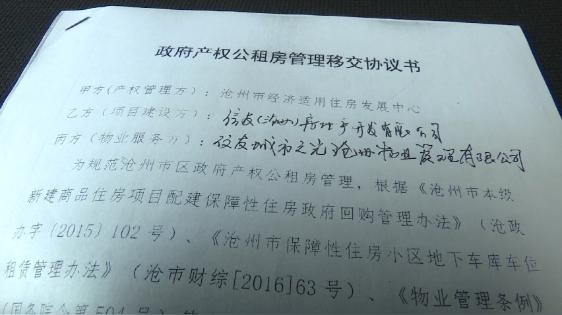 政府产权公租房管理移交协议书
甲方(产权管理方)：沧州市经济适用住房发展中心
乙方(项目建设方)：信友(沧州)房地产开发有限公司
丙方(物业服务方)：信友城市之光沧州物业管理有限公司
为规范沧州市区政府产权公租房管理，根据《沧州市本级
新建商品住房项目配建保障性住房政府回购管理办法》（沧政
办字〔2015〕102号）、《沧州市保障性住房小区地下车库车位
租赁管理办法》（沧市财综[2016]63号）、《物业管理条例》
(国务院令第504号)